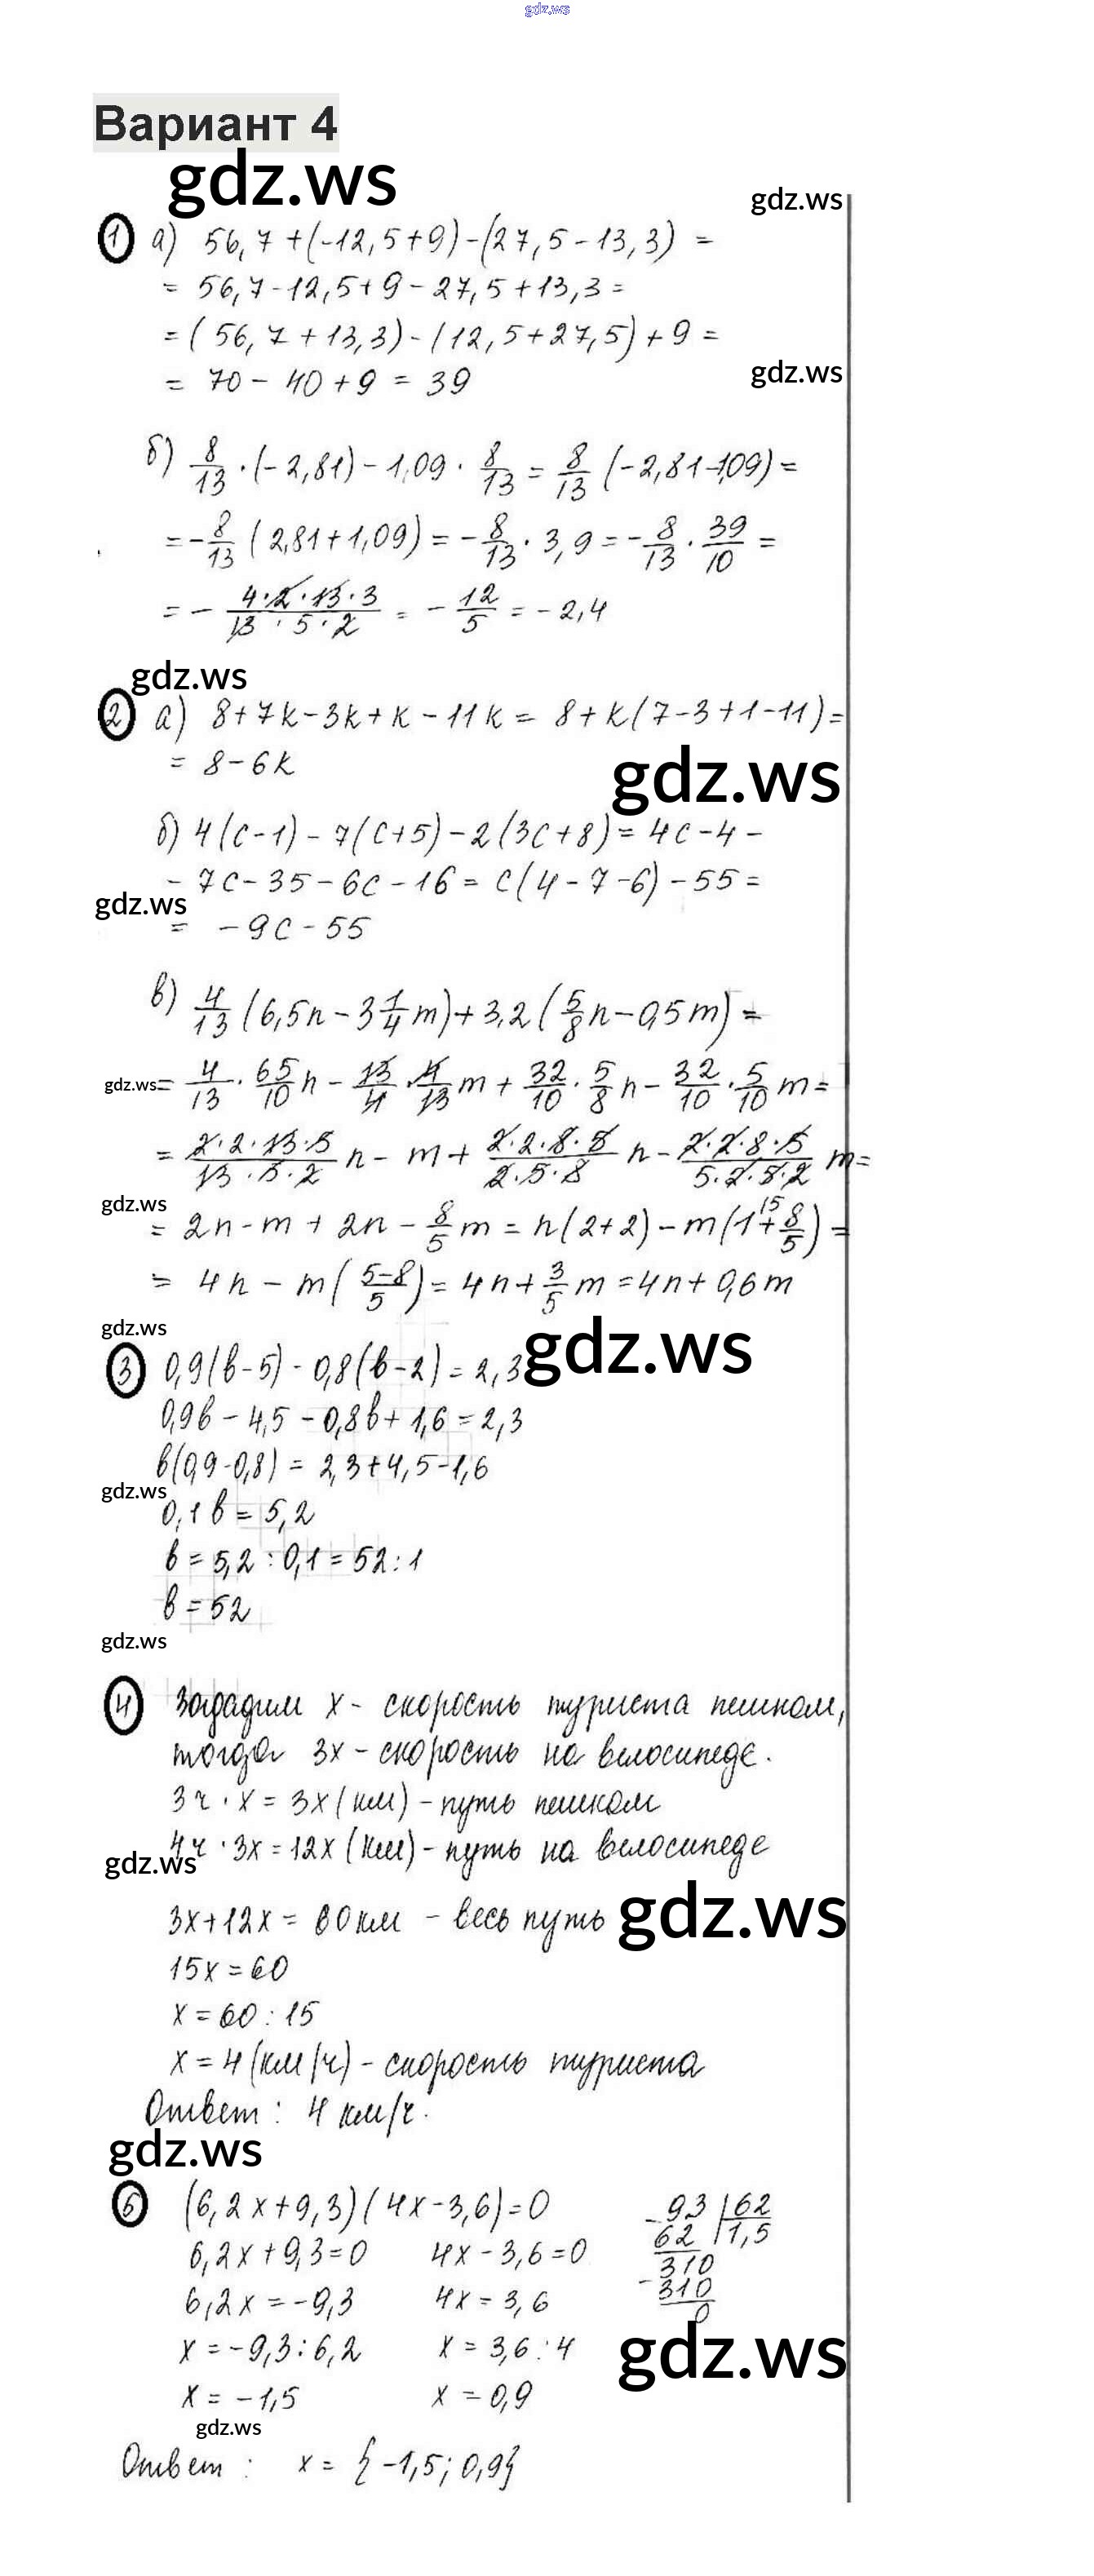 gdz.ws
Вариант 4
gdz.ws
gdz.ws
1 а) 56,7+(-12,5+9)-(27,5-13,3) =
= 56,7-12,5+9-27,5+13,3=
=(56,7+13,3)-(12,5+27,5)+9 =
gdz.ws
= 70-40+9 = 39
б) 8/13 · (-2,81) - 1,09 · 8/13 = 8/13 (-2,81-1,09) =
= -8/13 (2,81+1,09) = -8/13 · 3,9 = -8/13 · 39/10 =
= - 4·2·13·3/13·5·2 = - 12/5 = -2,4
gdz.ws
2 а) 8+7k-3k+k-11k = 8+k(7-3+1-11)=
= 8-6k
gdz.ws
б) 4(c-1)-7(c+5)-2(3c+8)= 4c-4-
-7c-35-6c-16= c(4-7-6)-55=
gdz.ws
= -9c-55
в) 4/13 (6,5n - 3 1/4 m)+3,2(5/8 n - 0,5m) =
gdz.ws
= 4/13 · 65/10 n - 13/4 · 4/13 m + 32/10 · 5/8 n - 32/10 · 5/10 m =
= 2·2·13·5/13·5·2 n - m + 2·2·8·5/2·5·8 n - 2·2·8·5/5·2·5·2 m=
gdz.ws
= 2n-m+2n- 8/5 m = n(2+2)-m(1+ 8/5) =
= 4n - m(5-8/5)= 4n+ 3/5 m =4n+0,6m
gdz.ws
gdz.ws
3 0,9(b-5)-0,8(b-2)=2,3
0,9b-4,5-0,8b+1,6=2,3
b(0,9-0,8) = 2,3+4,5-1,6
gdz.ws
0,1b=5,2
b=5,2:0,1=52:1
b=52
gdz.ws
4 Зададим x- скорость туриста пешком,
тогда 3x-скорость на велосипеде.
3ч·x=3x(км)-путь пешком
4ч·3x=12x(км)-путь на велосипеде
gdz.ws
3x+12x= 60км - весь путь
gdz.ws
15x=60
x=60:15
x=4(км/ч)-скорость туриста
Ответ: 4 км/ч.
gdz.ws
5 (6,2x+9,3)(4x-3,6)=0 -93 |62
6,2x+9,3=0 4x-3,6=0 62 |1,5
6,2x=-9,3 4x=3,6 310
-310
0
x=-9,3:6,2 x=3,6:4
gdz.ws
x=-1,5 x=0,9
gdz.ws
Ответ: x= {-1,5; 0,9}